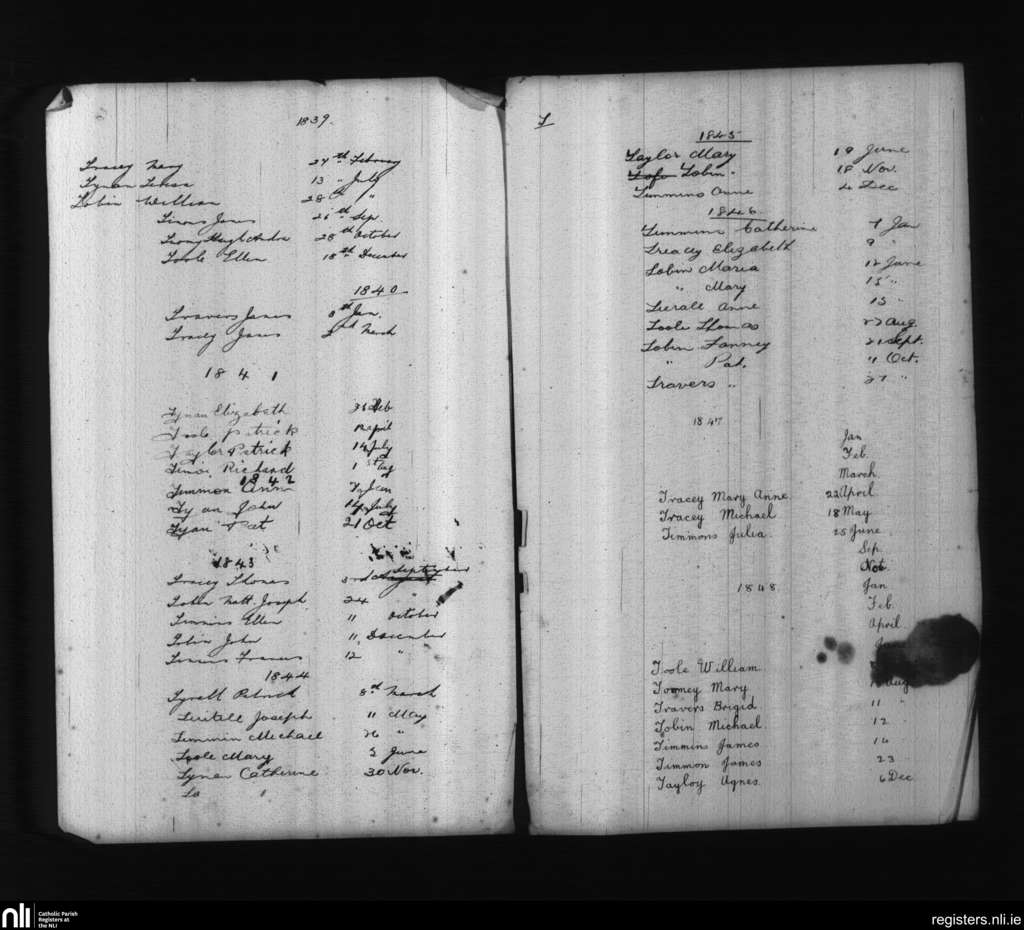 1839.
Tracey Mary 27th February
Tynan 13 " July
Tobin William 28 " "
James 21st Sep.
28th October
Toole Ellen 18th December
1840
Travers James 8th Jan.
Tracey James 2nd March
1841
Tynan Elizabeth Feb
Toole Patrick April
Taylor Patrick 14 July
Richard 1st Aug
1842
Timmon Ann 7 Jan
Tynan John 14 July
Tynan Pat 21 Oct
1843
Tracey Thomas 3rd August September
Tobin Matt. Joseph 24 "
Timmins Ellen 11 October
Tobin John 11 December
Francis 12 "
1844
Tyrell Patrick 8th March
Joseph 11 May
Timmin Michael 26 "
Toole Mary 5 June
Tynan Catherine 30 Nov.
To
T
1845
Taylor Mary 19 June
Tobin. 18 Nov.
Timmins Anne 4 Dec
1846
Timmins Catherine 7 Jan
Treacey Elizabeth 9 "
Tobin Maria 12 June
" Mary 15 "
Anne 15 "
Toole Thomas 27 Aug.
Tobin Fanney 21 Sept.
" Pat. 11 Oct.
Travers " 27 "
1847
Jan
Feb.
March.
Tracey Mary Anne 22 April
Tracey Michael 18 May
Timmons Julia. 25 June
Sep.
Nov.
1848 Jan
Feb.
April
Toole William
Toomey Mary Aug
Travers Brigid. 11 "
Tobin Michael 12
Timmins James 14
Timmon James 23
Tayloy Agnes. 6 Dec
nli
Catholic Parish
Registers at
the NLI
registers.nli.ie